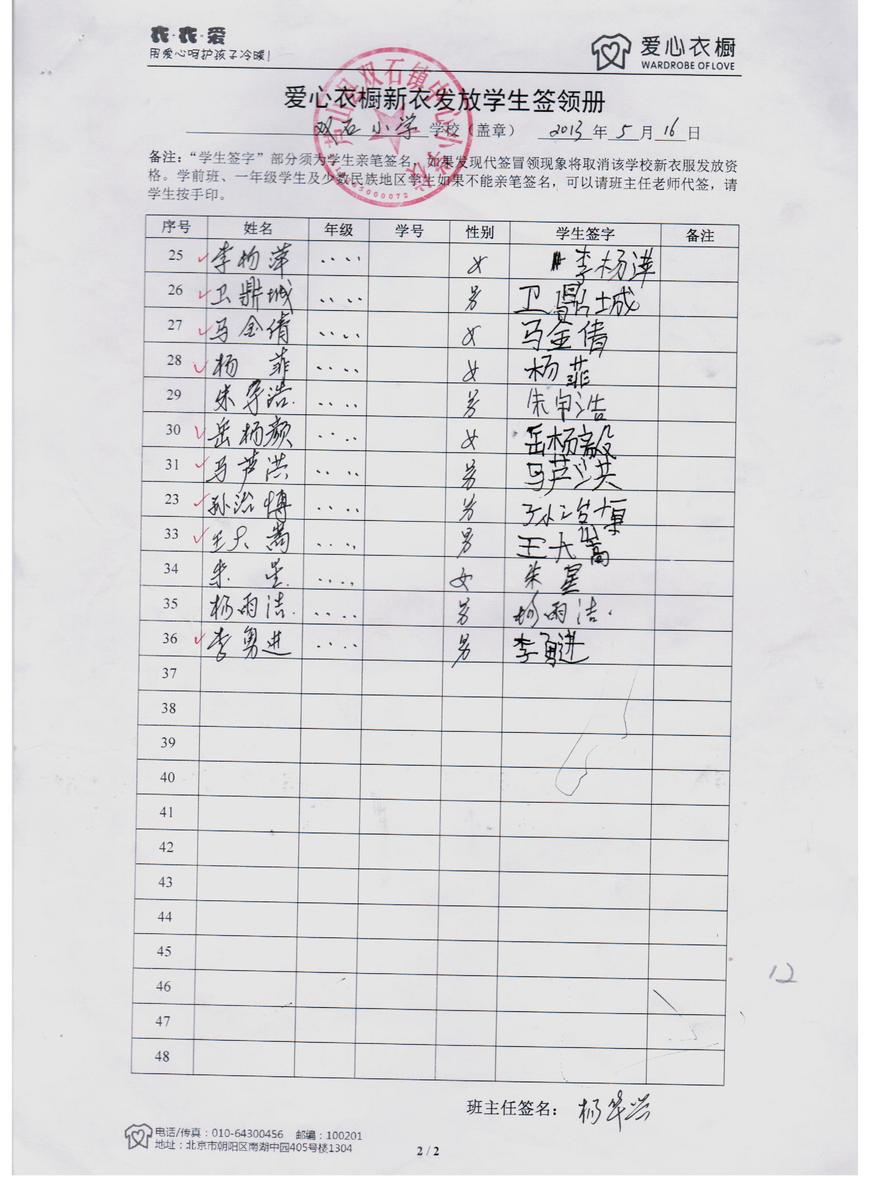 衣·衣·爱
用爱心呵护孩子冷暖!
爱心衣橱
WARDROBE OF LOVE
爱心衣橱新衣发放学生签领册
双石小学 学校（盖章） 2013 年 5 月 16 日
备注：“学生签字”部分须为学生亲笔签名，如果发现代签冒领现象将取消该学校新衣服发放资
格。学前班、一年级学生及少数民族地区学生如果不能亲笔签名，可以请班主任老师代签，请
学生按手印。
序号 姓名 年级 学号 性别 学生签字 备注
25 李杨萍 女 李杨萍
26 卫鼎城 男 卫鼎城
27 马金倩 女 马金倩
28 杨菲 女 杨菲
29 朱宇浩 男 朱宇浩
30 岳杨 女 岳杨
31 马芦洪 男 马芦洪
23 孙治博 男 孙治博
33 王大嵩 男 王大嵩
34 朱星 女 朱星
35 杨雨洁 男 杨雨洁
36 李勇进 男 李勇进
37
38
39
40
41
42
43
44
45
46
47
48
12
班主任签名：杨华兴
电话/传真：010-64300456 邮编：100201
地址：北京市朝阳区南湖中园405号楼1304
2 / 2